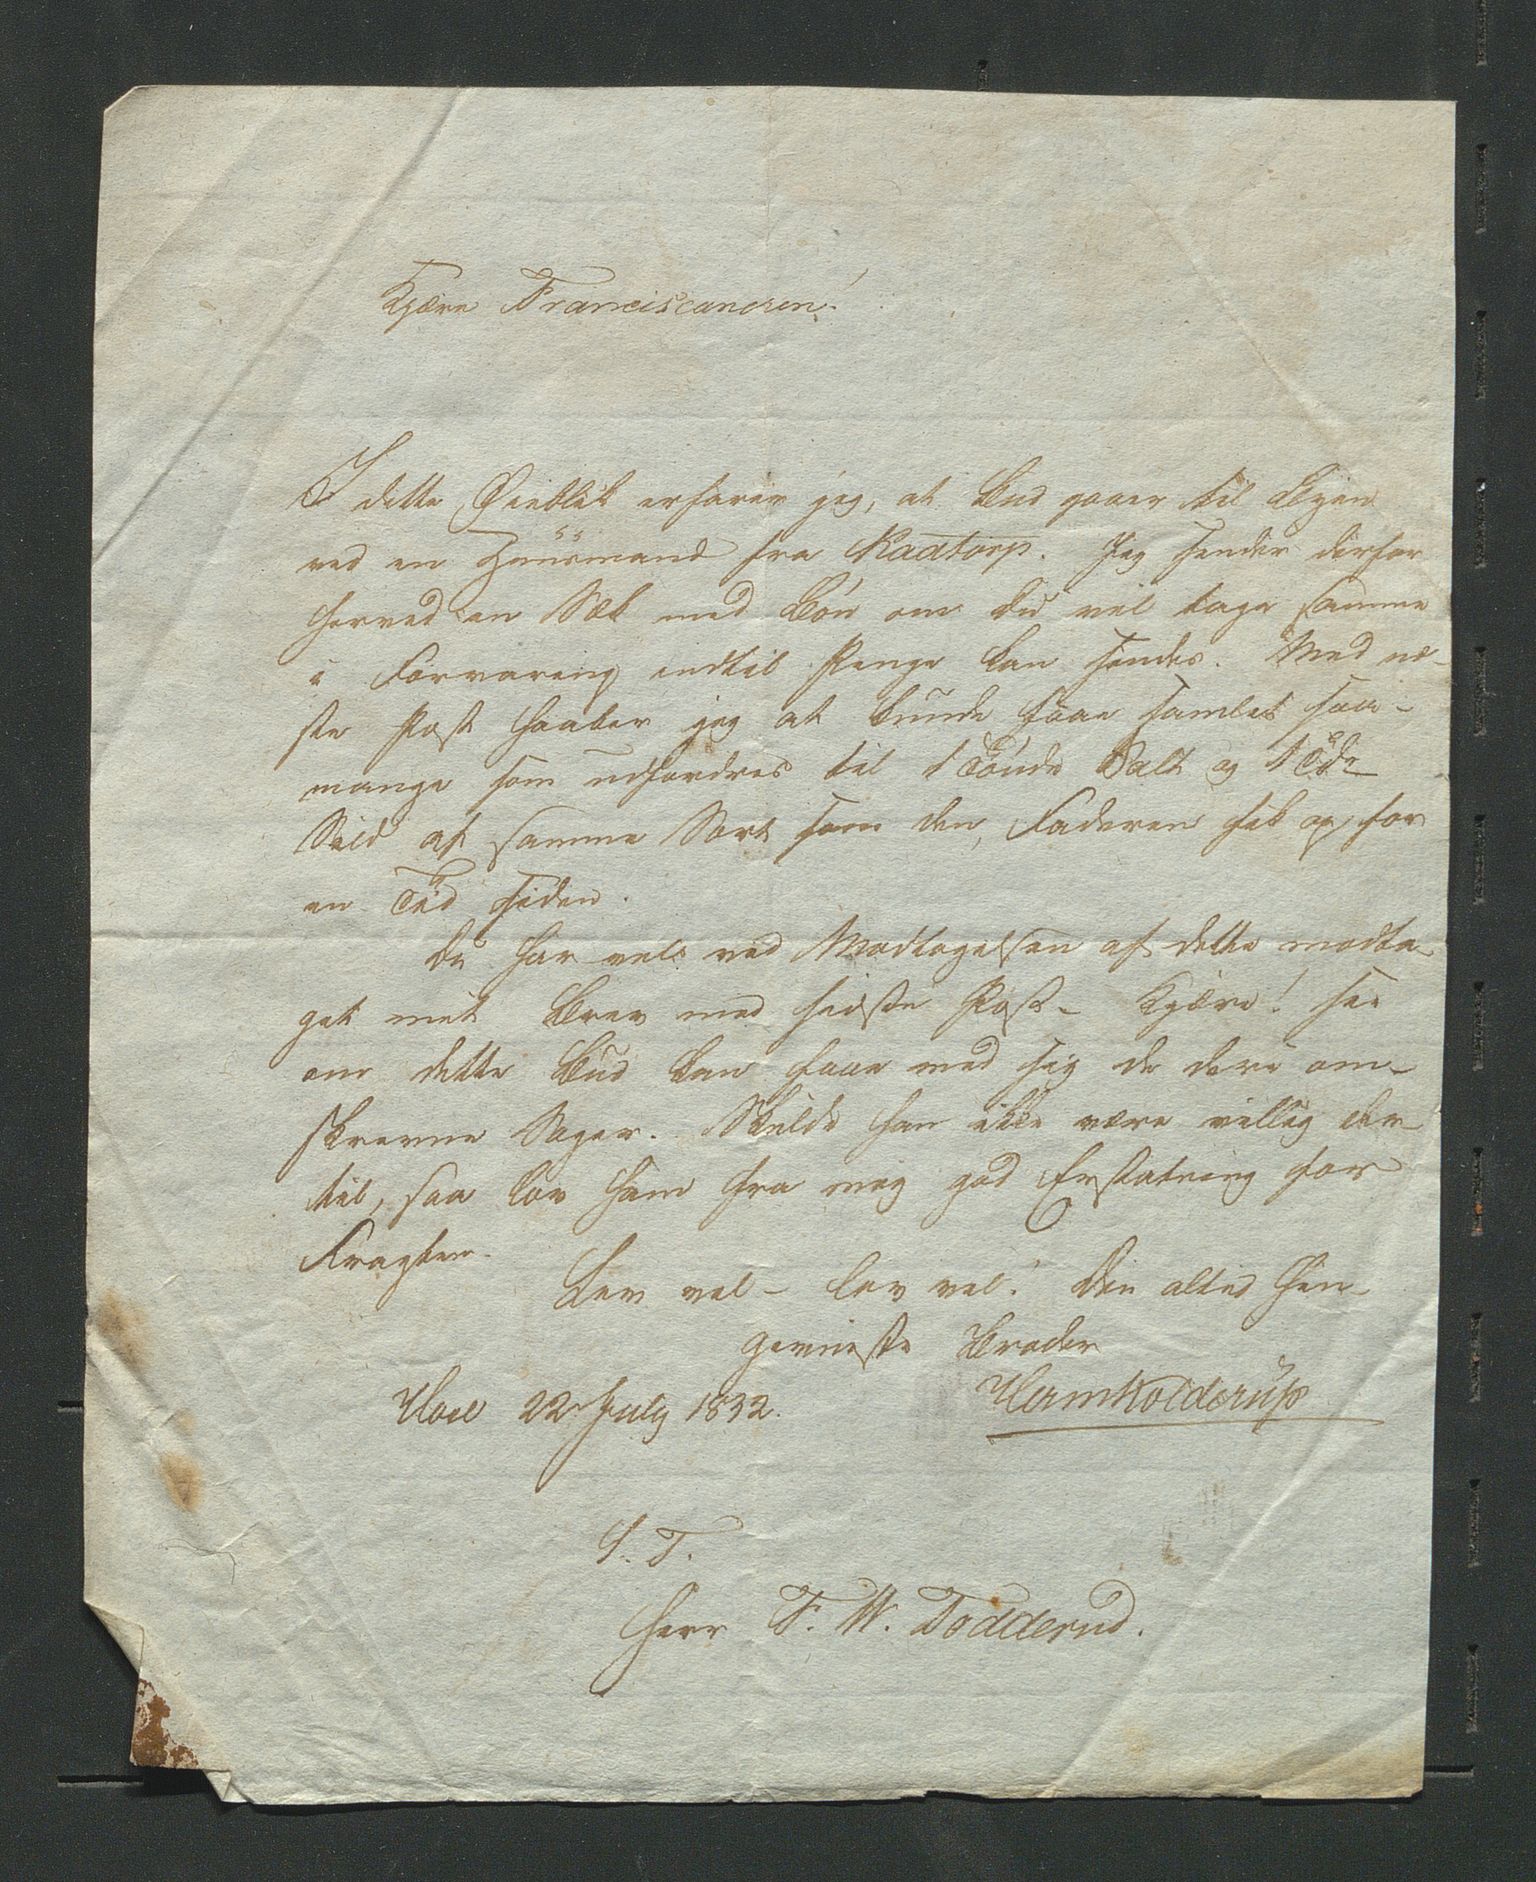 Kjære Franciscaneren!
I dette Øieblik erfarer jeg, at Bud gaaer til Byen
ved en Huusmand fra Kaatorp. Jeg sender derfor
herved en Sæk med Bøn om Du vil tage samme
i Forvaring indtil Penge kan sendes. Med næ-
ste Post haaber jeg at kunde faae samlet saa-
mange som udfordres til 1 Tønde Salt og 1 Tde
Sild af samme Sort som den, Faderen fik op for
en Tid siden.
Du har vel ved Modtagelsen af dette modta-
get mit Brev med sidste Post - Kjære! see
om dette Bud kan faae med sig de deri om-
skrevne Sager. Skulde han ikke være villig der-
til, saa lov ham fra mig god Erstatning for
Fragten.
Lev vel - lev vel! Din altid hen-
gevneste Broder
Hoel 22 July 1832. HamKolderup
S. T.
Herr F. W. Todderud.